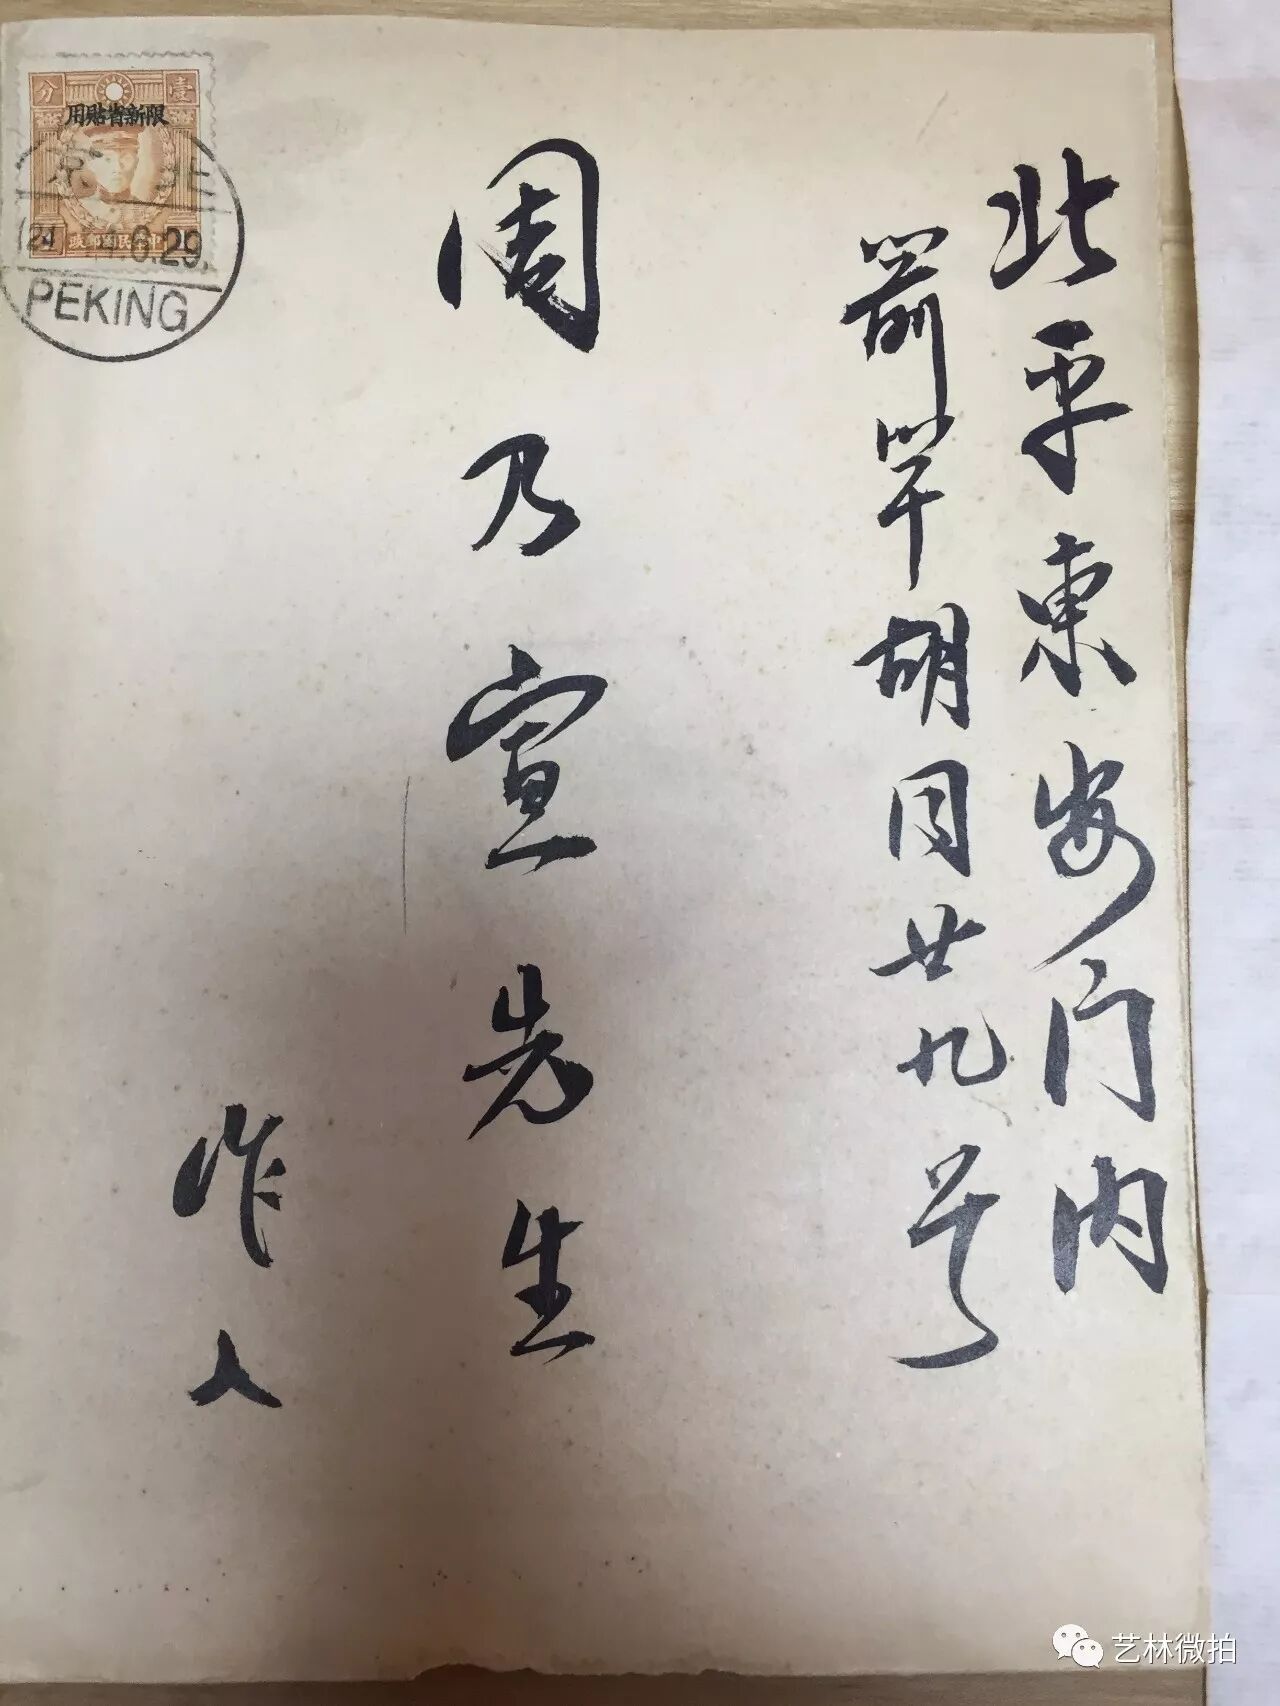 北平東安门内
箭竿胡同廿九号
周乃宣先生
作人
壹分
限新省貼用
中華民國郵政
北京
PEKING
艺林微拍